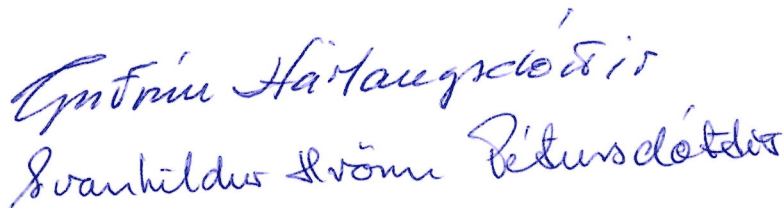 Guðrún Hárlaugsdóttir
Svanhildur Hrönn Pétursdóttir